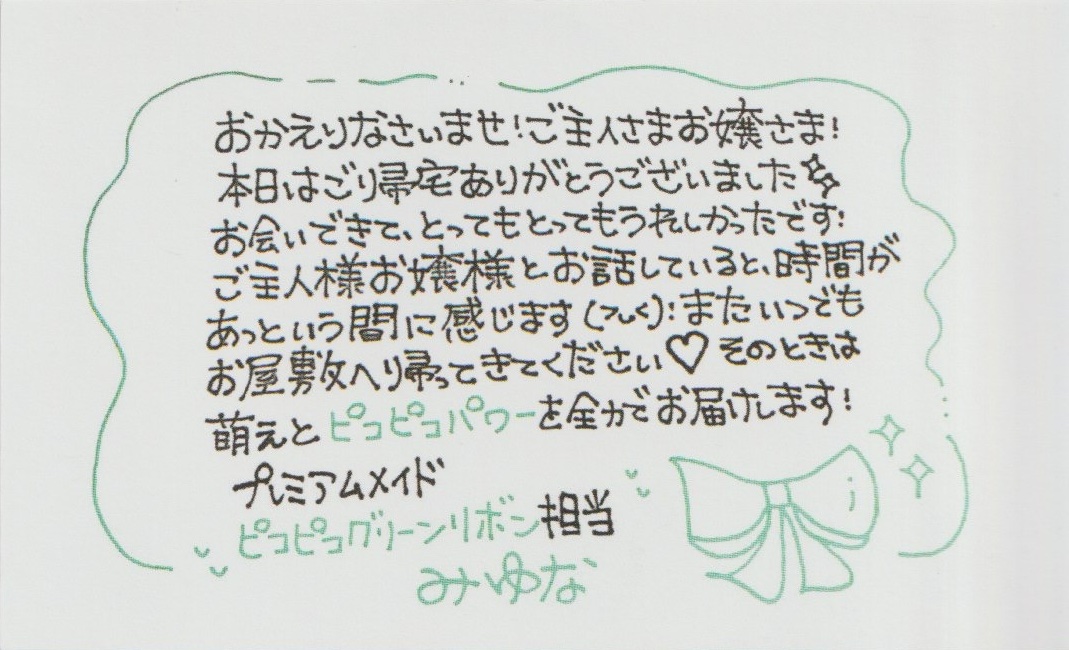 おかえりなさいませ!ご主人さまお嬢さま!
本日はご帰宅ありがとうございました✨
お会いできて、とってもとってもうれしかったです!
ご主人様お嬢様とお話していると、時間が
あっという間に感じます(つらく):またいつでも
お屋敷へ帰ってきてください♡そのときは
萌えとピコピコパワーを全力でお届けします!
プレミアムメイド
ピコピコグリーンリボン担当
みゆな